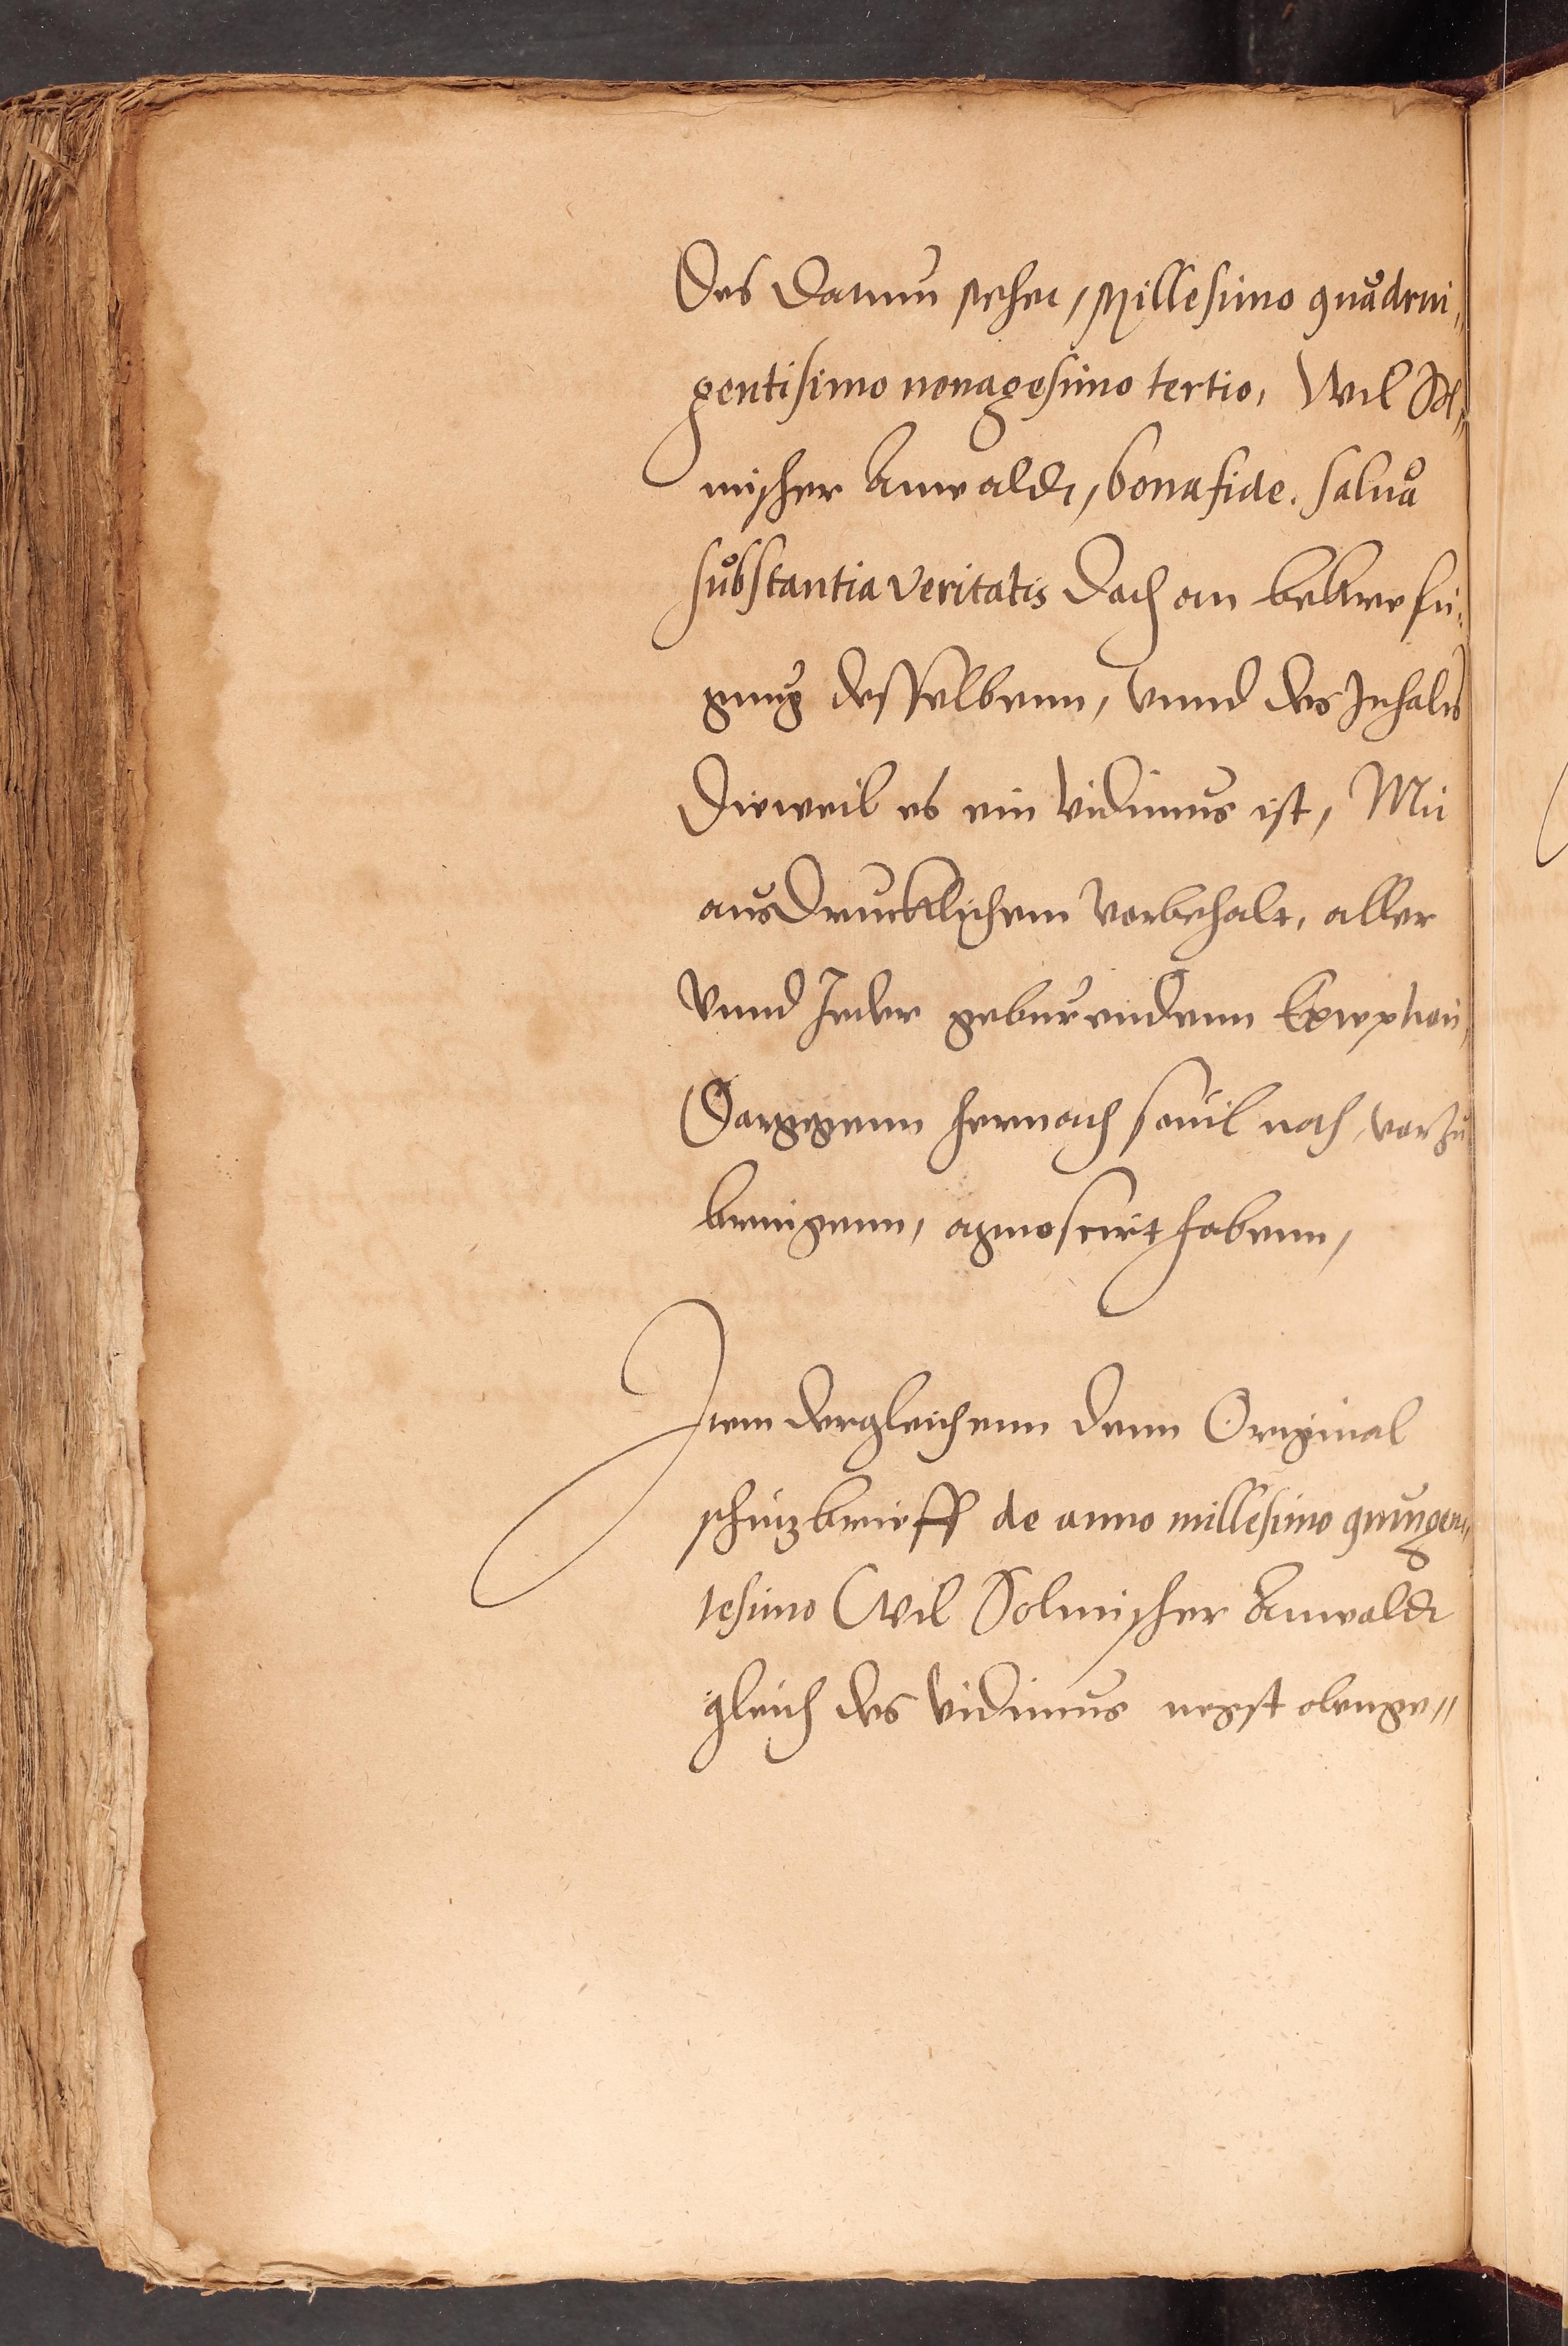 Des Datum stehet, Millesimo quadrin¬
gentisimo nonagesimo tertio, Wil Sol¬
mischer Anwaldt, bona fide. salua
substantia veritatis Doch on bekreffti¬
gung desselbenn, vnnd des Inhalts
Dieweil es ein vidimus ist, Mit
ausdrucklichem vorbehalt, aller
vnnd Jeder geburendenn Exception,
Dargegenn hernach souil noth, vorzu
bringenn, agnoscirt habenn,
Item dergleichenn denn Original
schutzbrieff de anno millesimo quingen¬
tesimo Wil Solmischer Anwaldt
gleich des vidimus negst obenge¬